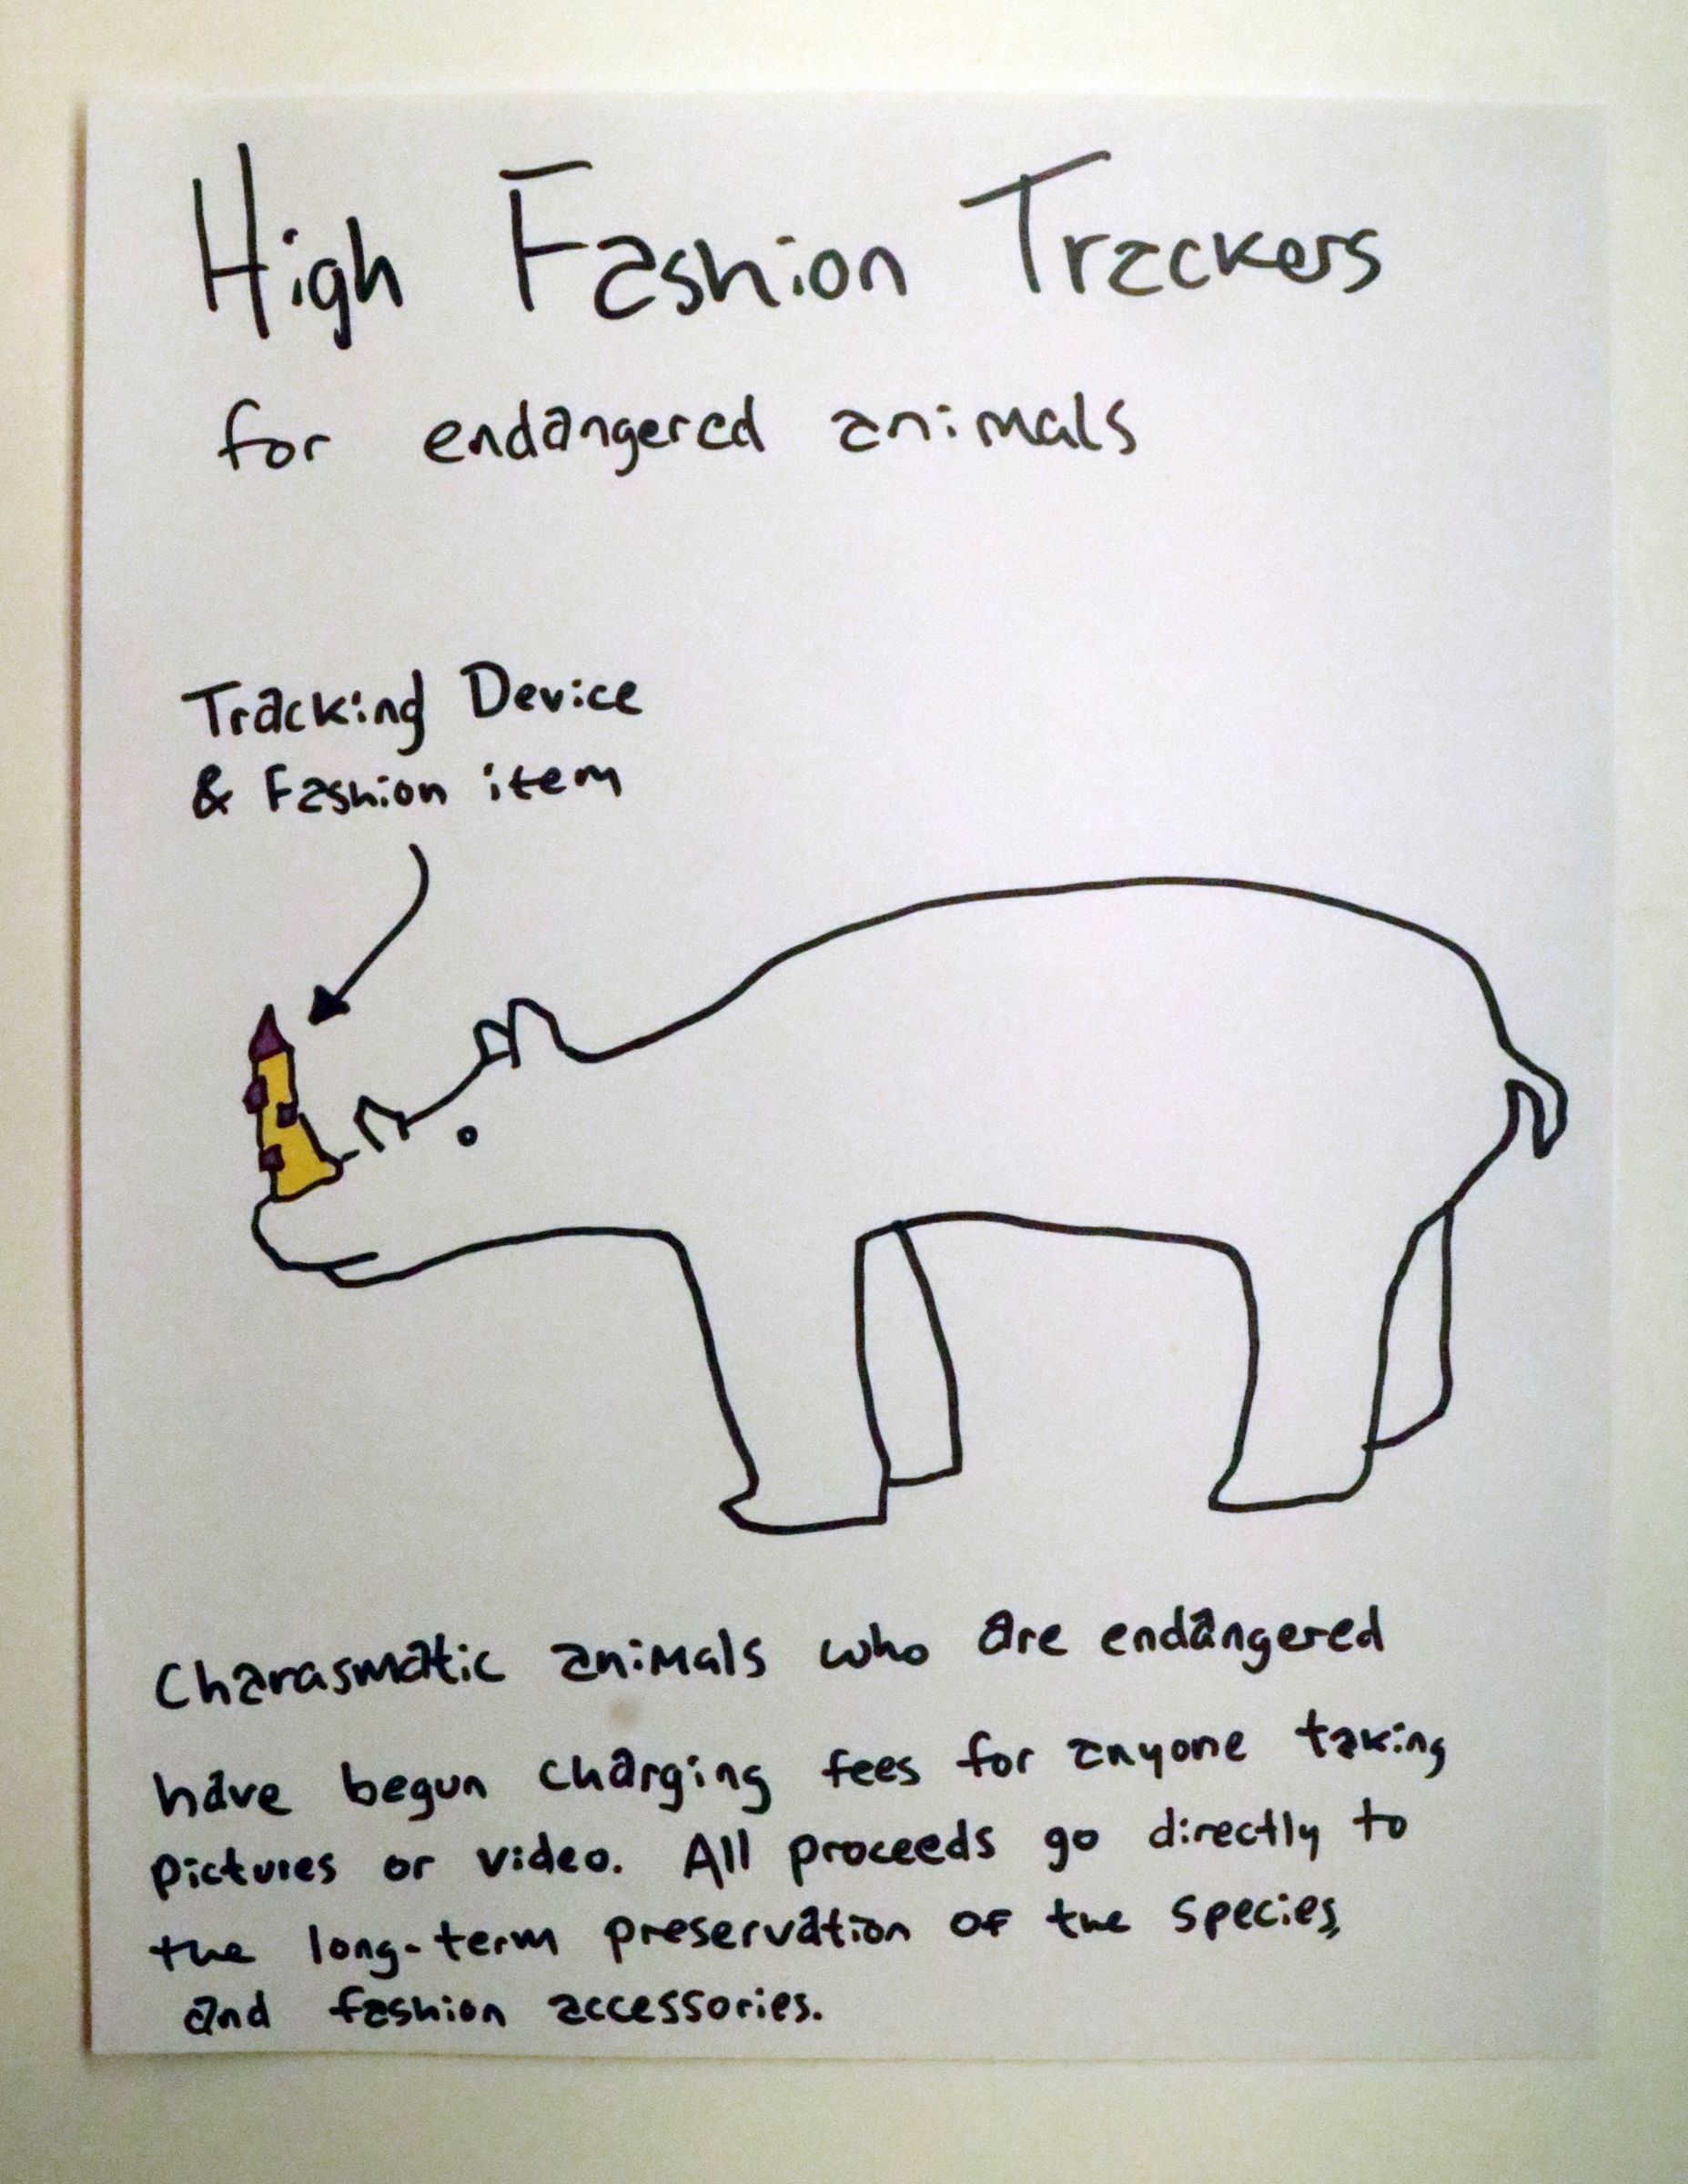 High Fashion Trackers
for endangered animals
Tracking Device
& Fashion item
Charasmatic animals who are endangered
have begun charging fees for anyone taking
pictures or video. All proceeds go directly to
the long-term preservation of the species,
and fashion accessories.